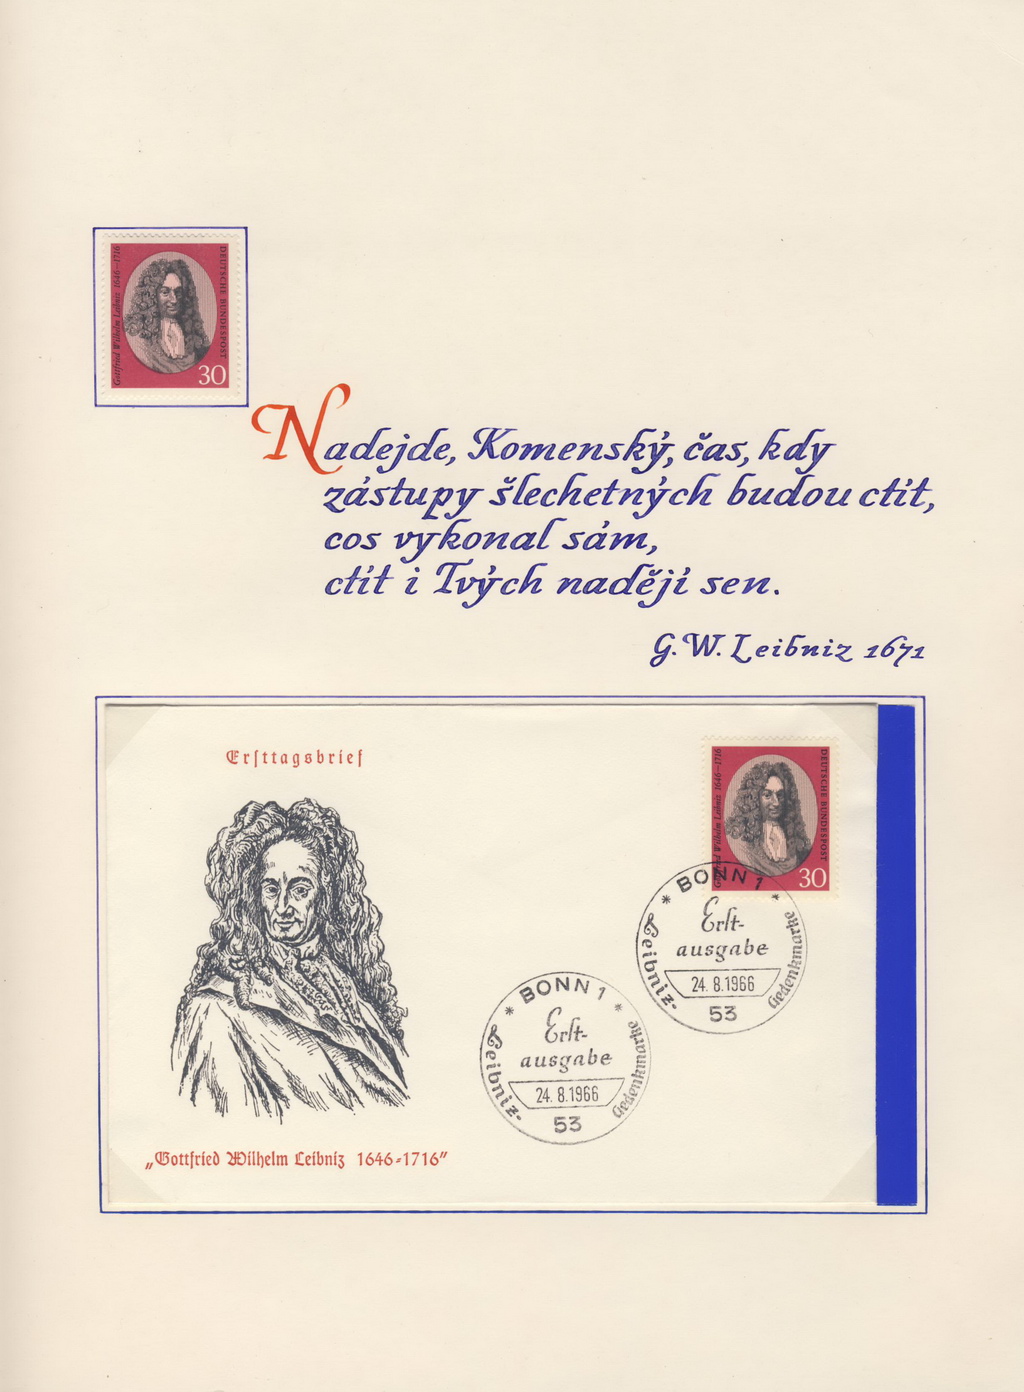 Gottfried Wilhelm Leibniz 1646-1716
DEUTSCHE BUNDESPOST
30
Nadejde, Komenský, čas, kdy
zástupy šlechetných budou ctít,
cos vykonal sám,
ctít i Tvých nadějí sen.
G. W. Leibniz 1671
Ersttagsbrief
Gottfried Wilhelm Leibniz 1646-1716
DEUTSCHE BUNDESPOST
30
BONN 1
Erst-
ausgabe
24. 8. 1966
53
Leibniz-
Gedenkmarke
BONN 1
Erst-
ausgabe
24. 8. 1966
53
Leibniz-
Gedenkmarke
„Gottfried Wilhelm Leibniz 1646-1716"